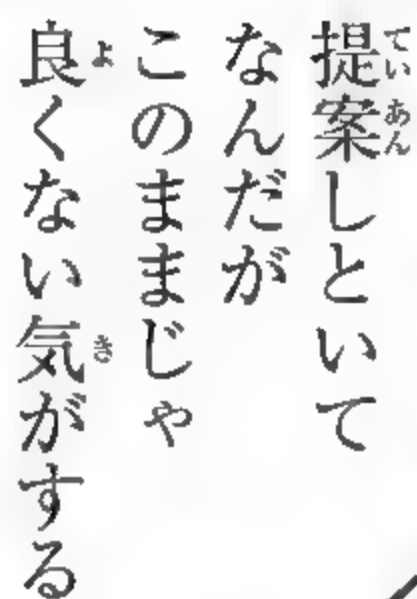 提案しといて
なんだが
このままじゃ
良くない気がする